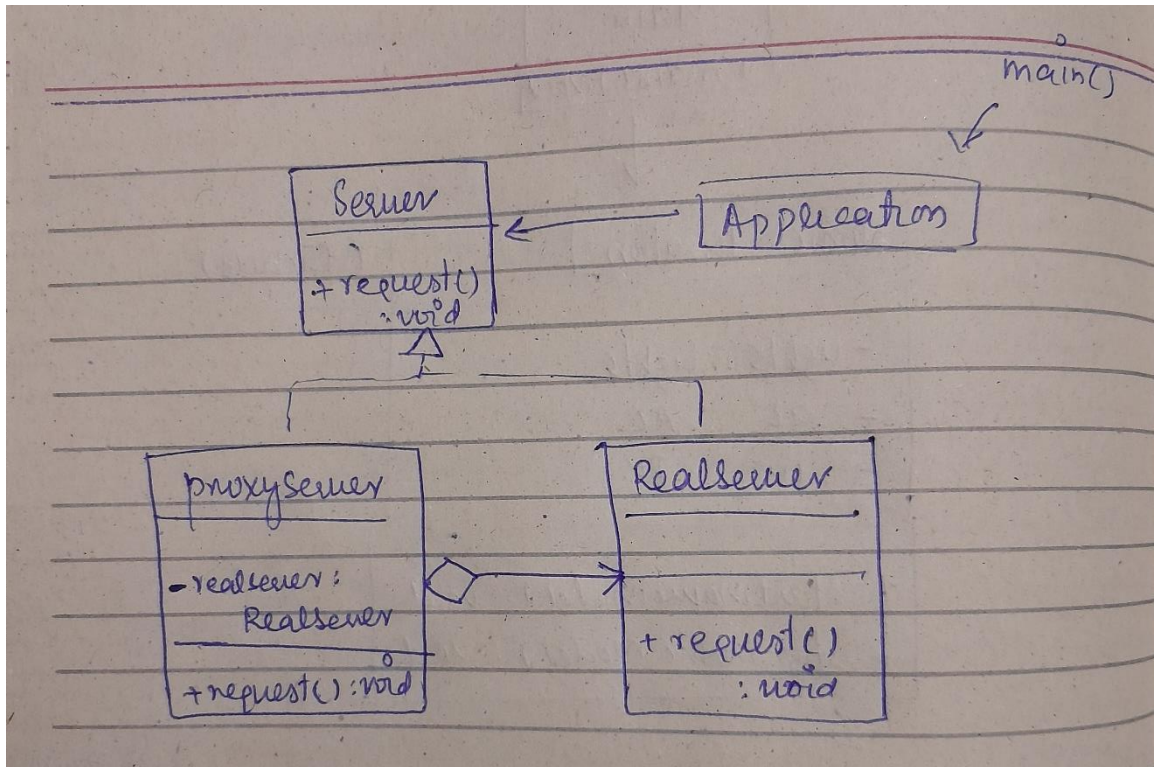 main()
Server
+ request()
: void
Application
proxyServer
- realserver:
RealServer
+ request() : void
RealServer
+ request()
: void